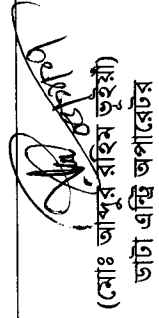 (মোঃ আব্দুর রহিম ভূইয়া)
ডাটা এন্ট্রি অপারেটর